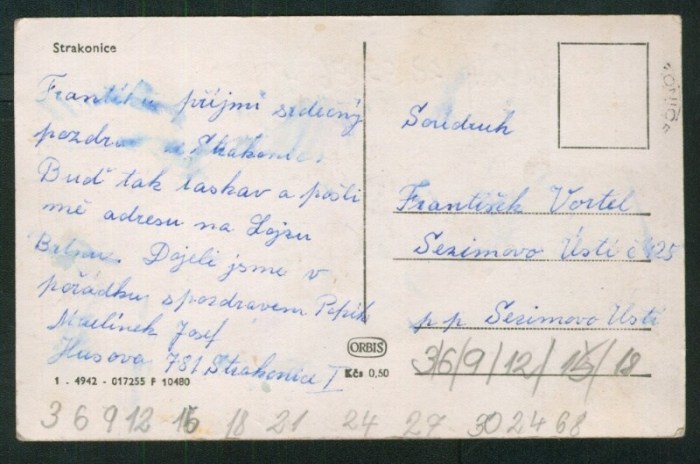 Strakonice
Františku příjmi srdečný
pozdrav Strakonic.
Buď tak laskav a pošli
mě adresu na Lojzu
Dojeli jsme v
pořádku, spozdravem Pepík
Maelínek Josef
Husova 781 Strakonice I
1 - 4942 - 017255 F 10480
Soudruh
František Vortel
Sezimovo Ústí č 425
p p Sezimovo Ústí
ORBIS
Kčs 0,50
36/9/12/15/18
3 6 9 12 15 18 21 24 27 30 24 68